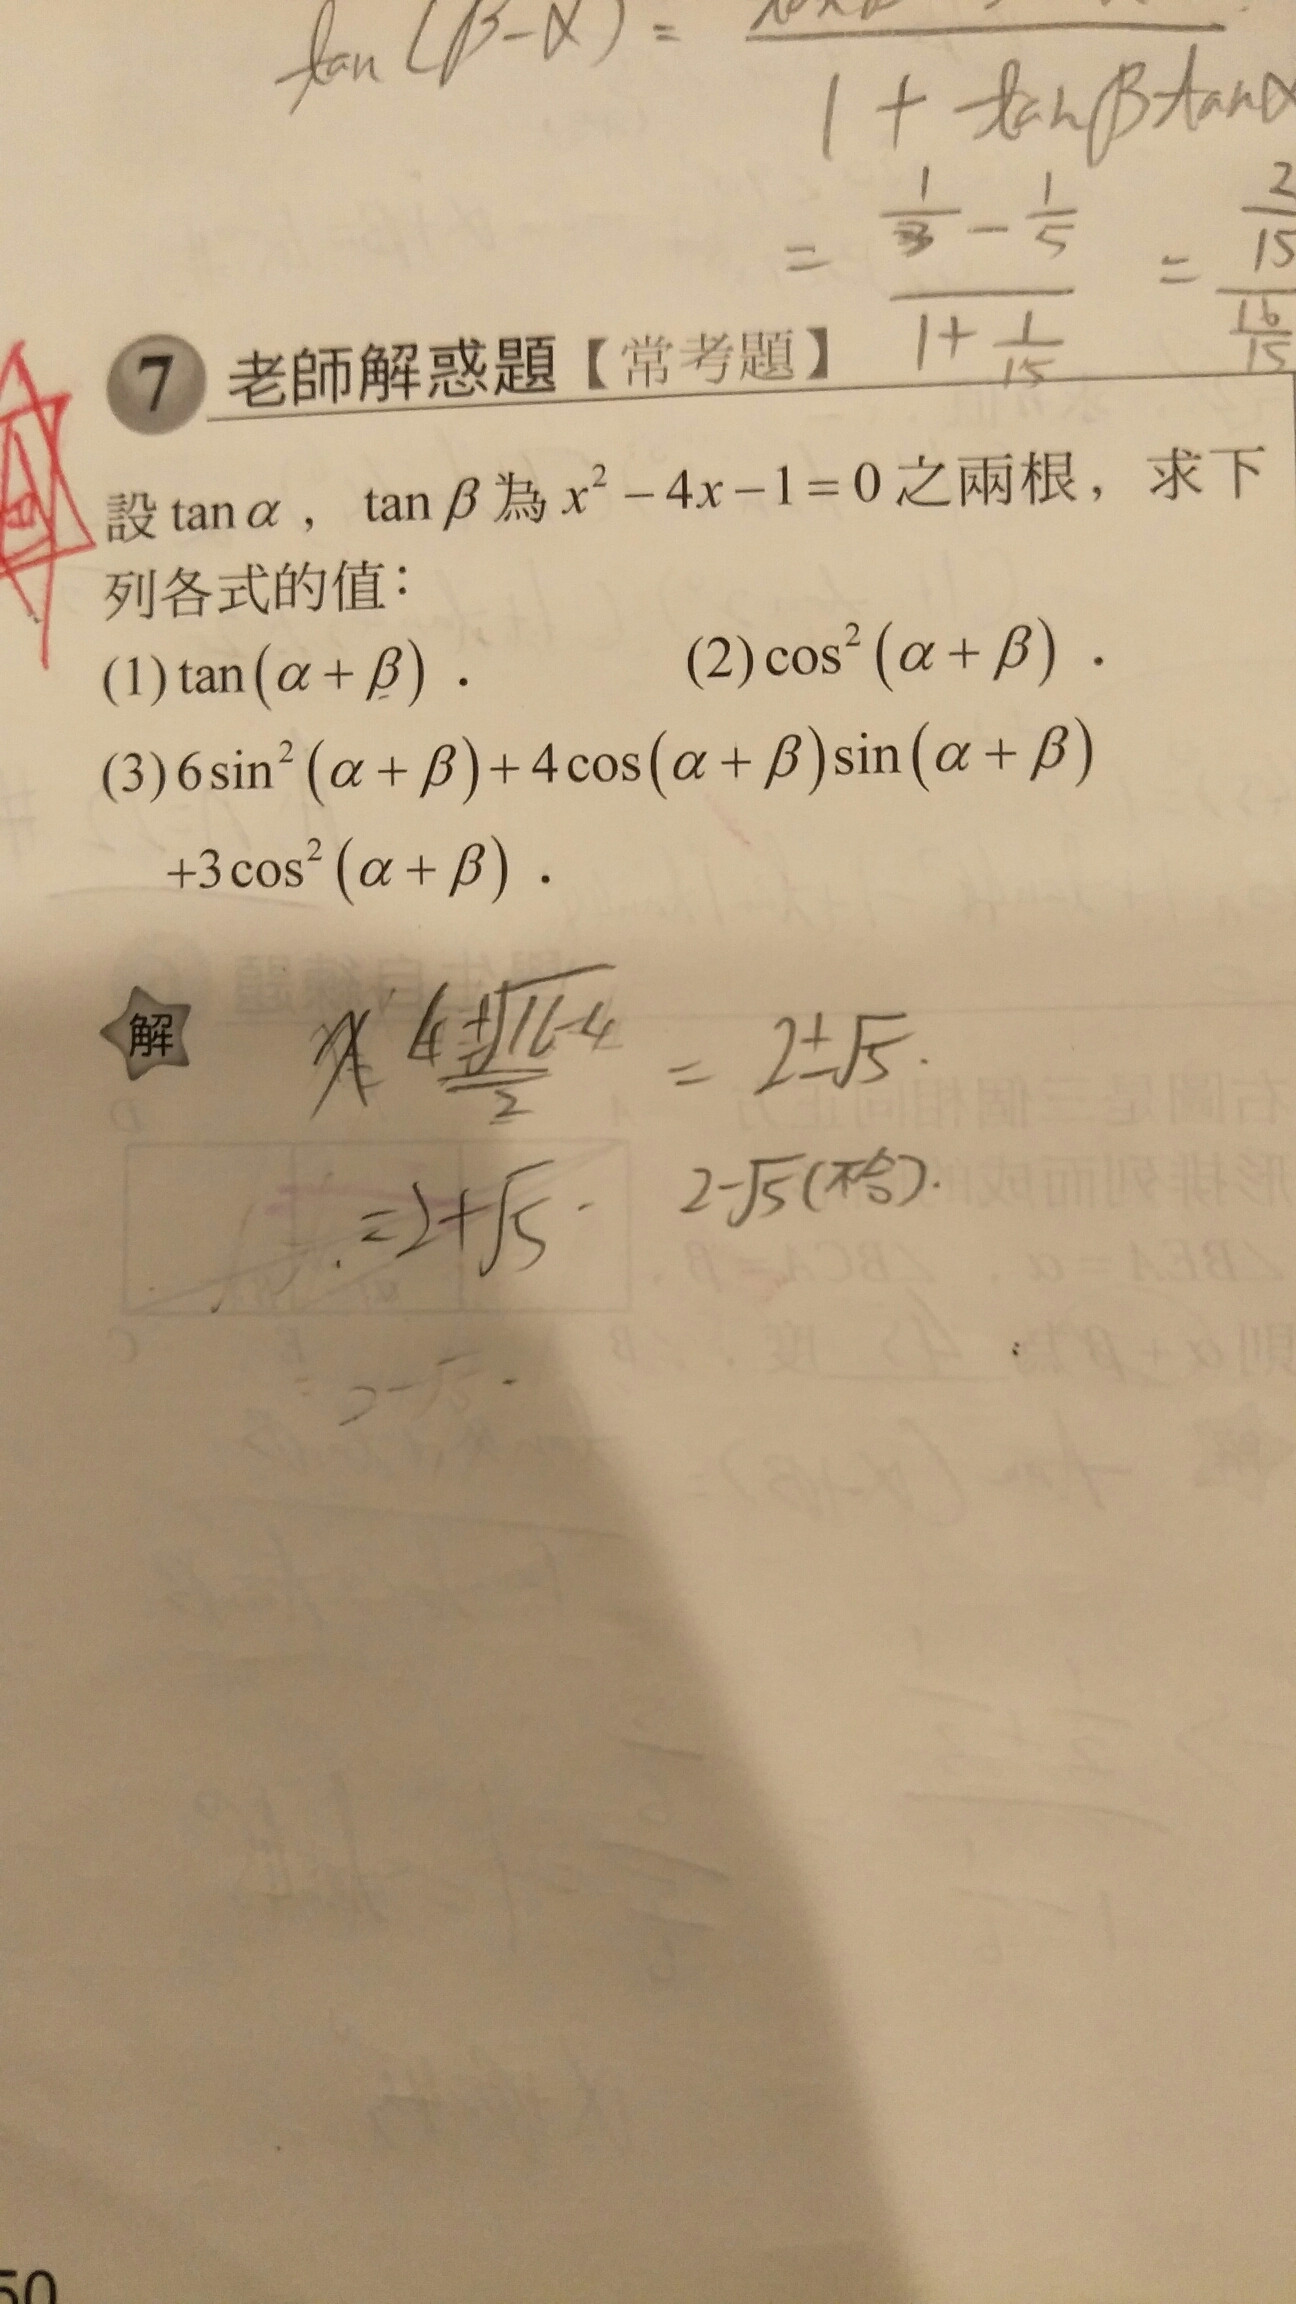 tan (β-α) =
1 + tanβtanα
= (1/3 - 1/5) / (1 + 1/15) = (2/15) / (16/15)
7 老師解惑題【常考題】
設 tanα， tanβ 為 x² − 4x − 1 = 0 之兩根，求下
列各式的值：
(1) tan(α + β)． (2) cos²(α + β)．
(3) 6sin²(α + β) + 4cos(α + β)sin(α + β)
+3cos²(α + β)．
解 x = (4±√16-4) / 2 = 2±√5.
= 2+√5. 2-√5 (不合).
= 2-√5.
50